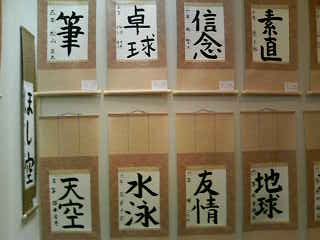 筆
卓球
信念
素直
ほし空
天空
水泳
友情
地球